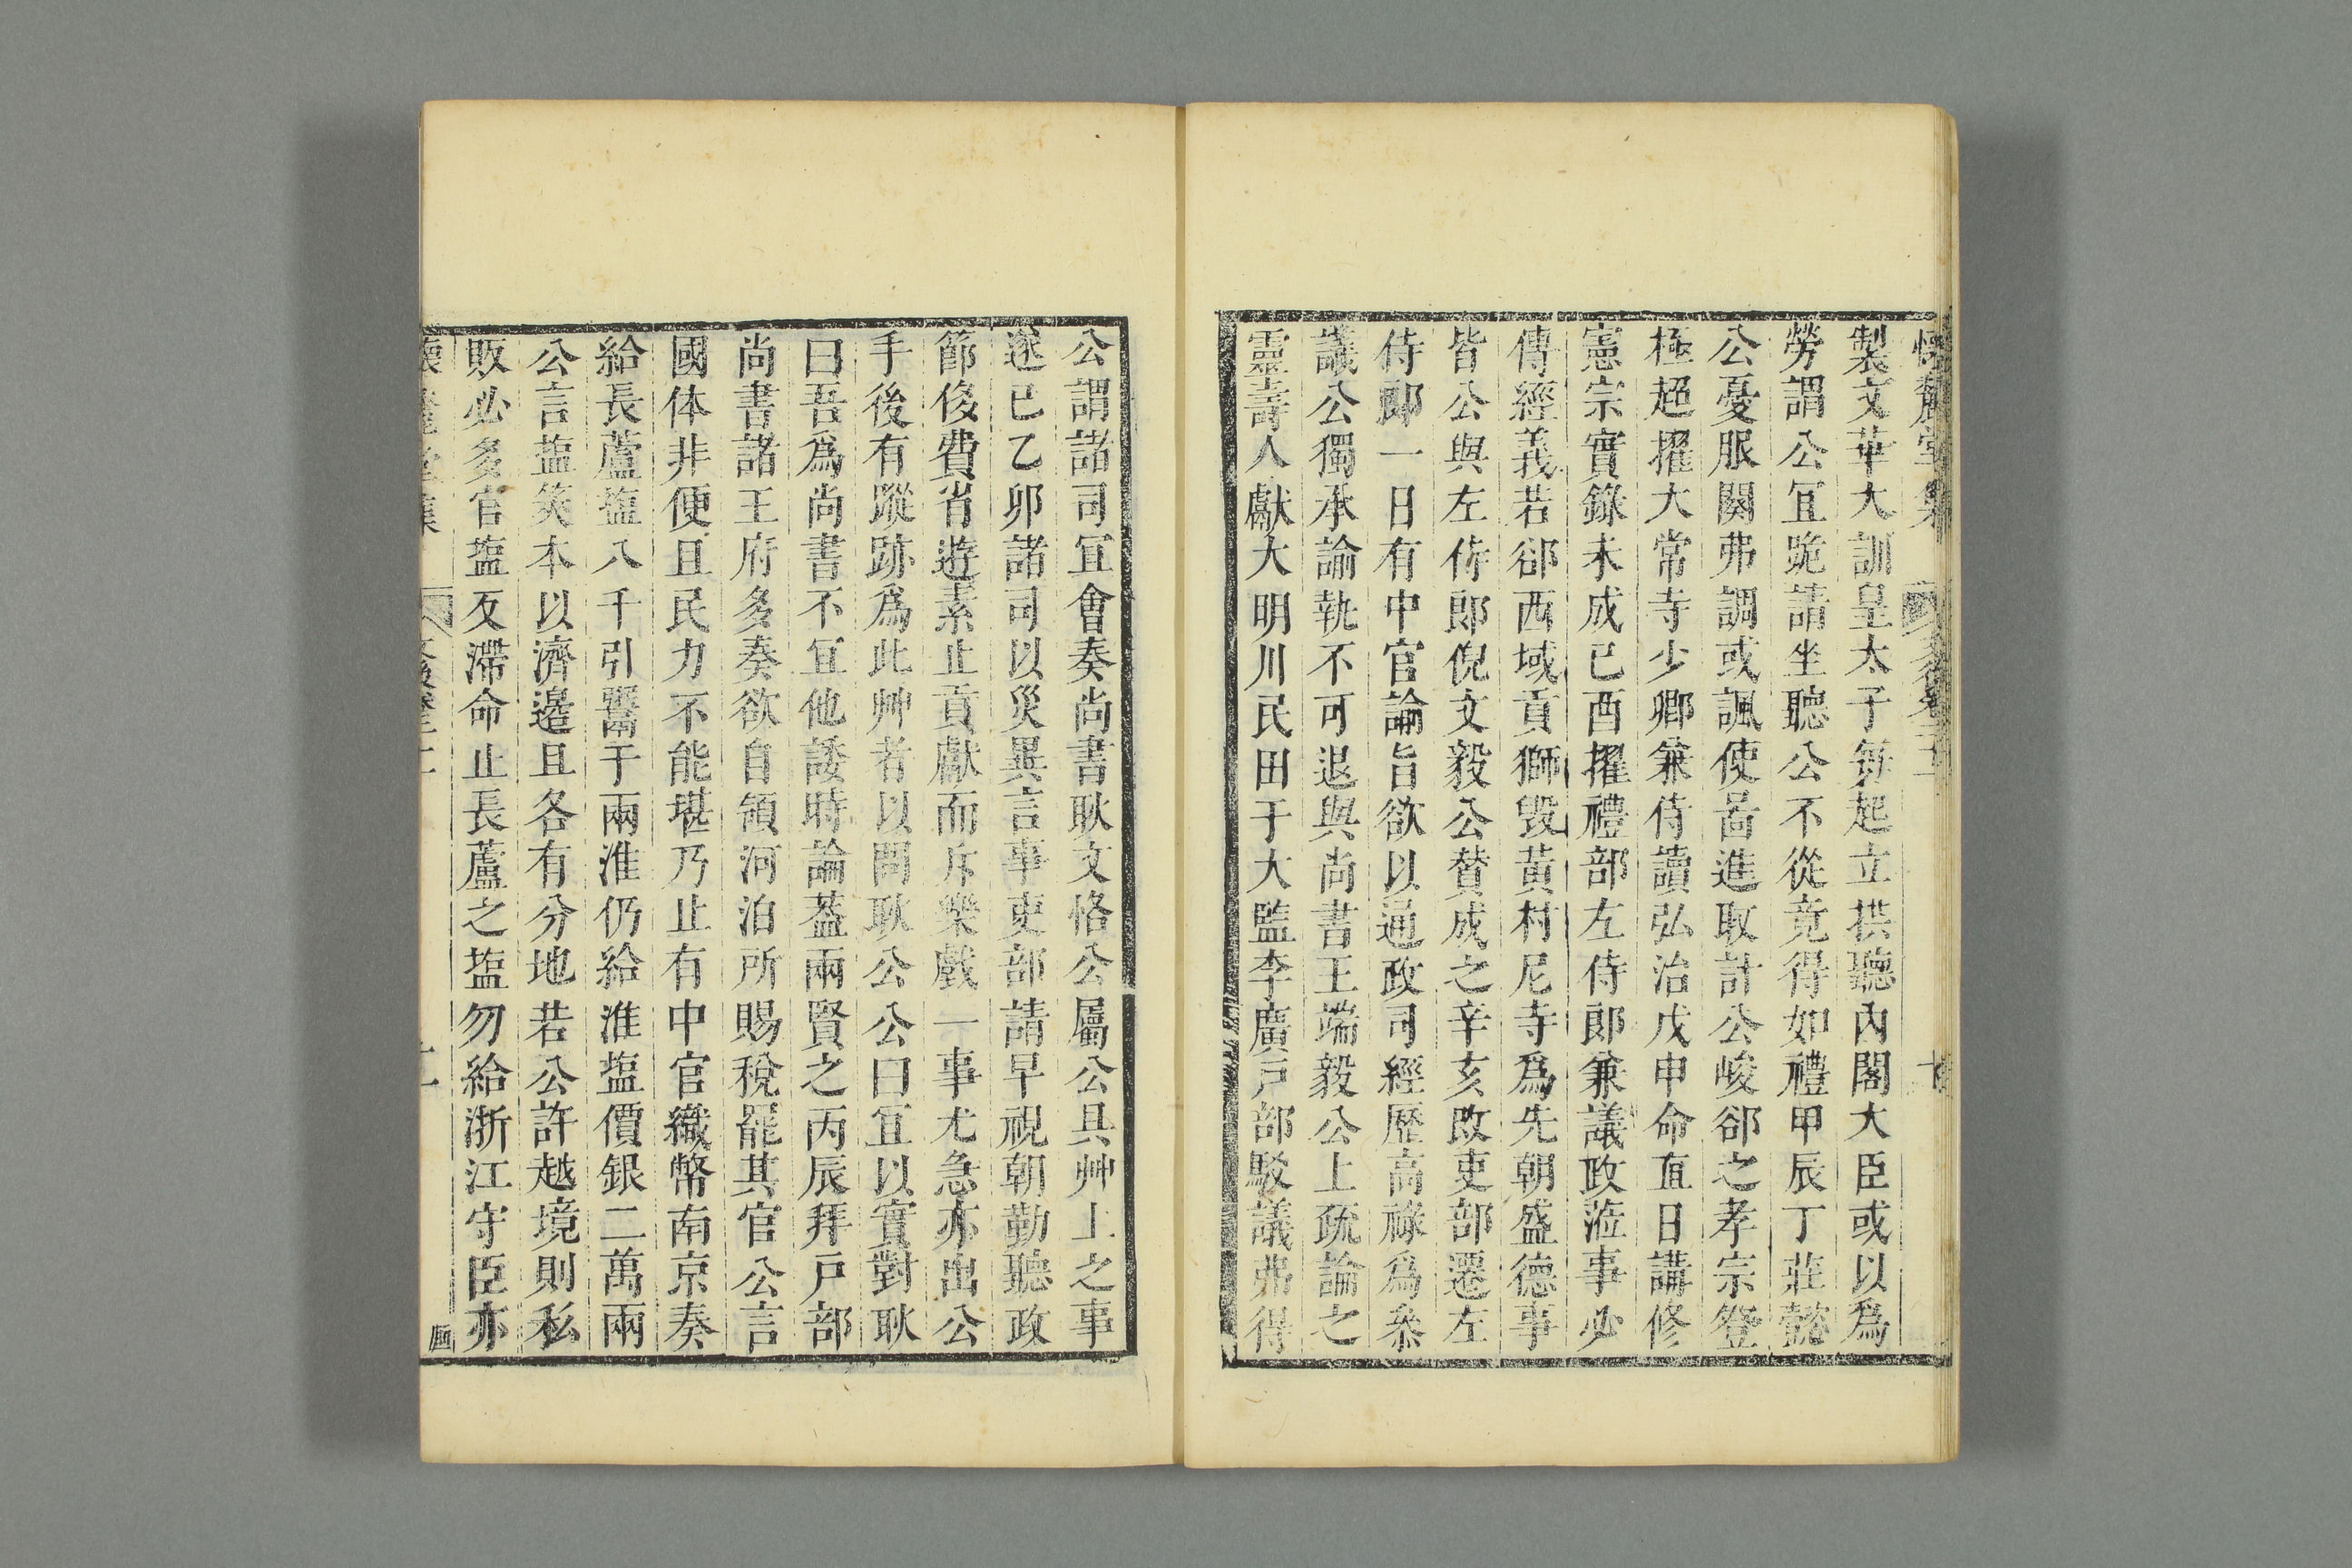 懷麓堂集 文後卷二十 十
製文華大訓皇太子每起立拱聽內閣大臣或以爲
勞謂公冝跪請坐聽公不從竟得如禮甲辰丁莊懿
公憂服闋弗調或諷使啚進取計公峻郤之孝宗登
極超擢大常寺少卿兼侍讀弘治戊申命直日講修
憲宗實錄未成已酉擢禮部左侍郎兼議政涖事必
傳經義若郤西域貢獅毀黃村尼寺爲先朝盛德事
皆公與左侍郎倪文毅公賛成之辛亥改吏部遷左
侍郎一日有中官諭旨欲以通政司經歷高祿爲叅
議公獨承諭執不可退與尚書王端毅公上疏論之
靈壽人獻大明川民田于大監李廣戶部駁議弗得
公謂諸司冝會奏尚書耿文恪公屬公具艸上之事
遂已乙卯諸司以災異言事吏部請早視朝勤聽政
節侈費省遊素止貢獻而斥樂戲一事尤急亦出公
手後有蹤跡爲此艸者以問耿公公曰冝以實對耿
曰吾爲尚書不冝他諉時論葢兩賢之丙辰拜戶部
尚書諸王府多奏欲自領河泊所賜稅罷其官公言
國体非便且民力不能堪乃止有中官織幣南京奏
給長蘆塩八千引鬻于兩淮仍給淮塩價銀二萬兩
公言塩筴本以濟邊且各有分地若公許越境則私
販必多官塩反滯命止長蘆之塩勿給浙江守臣亦
懷麓堂集 文後卷二十 十一